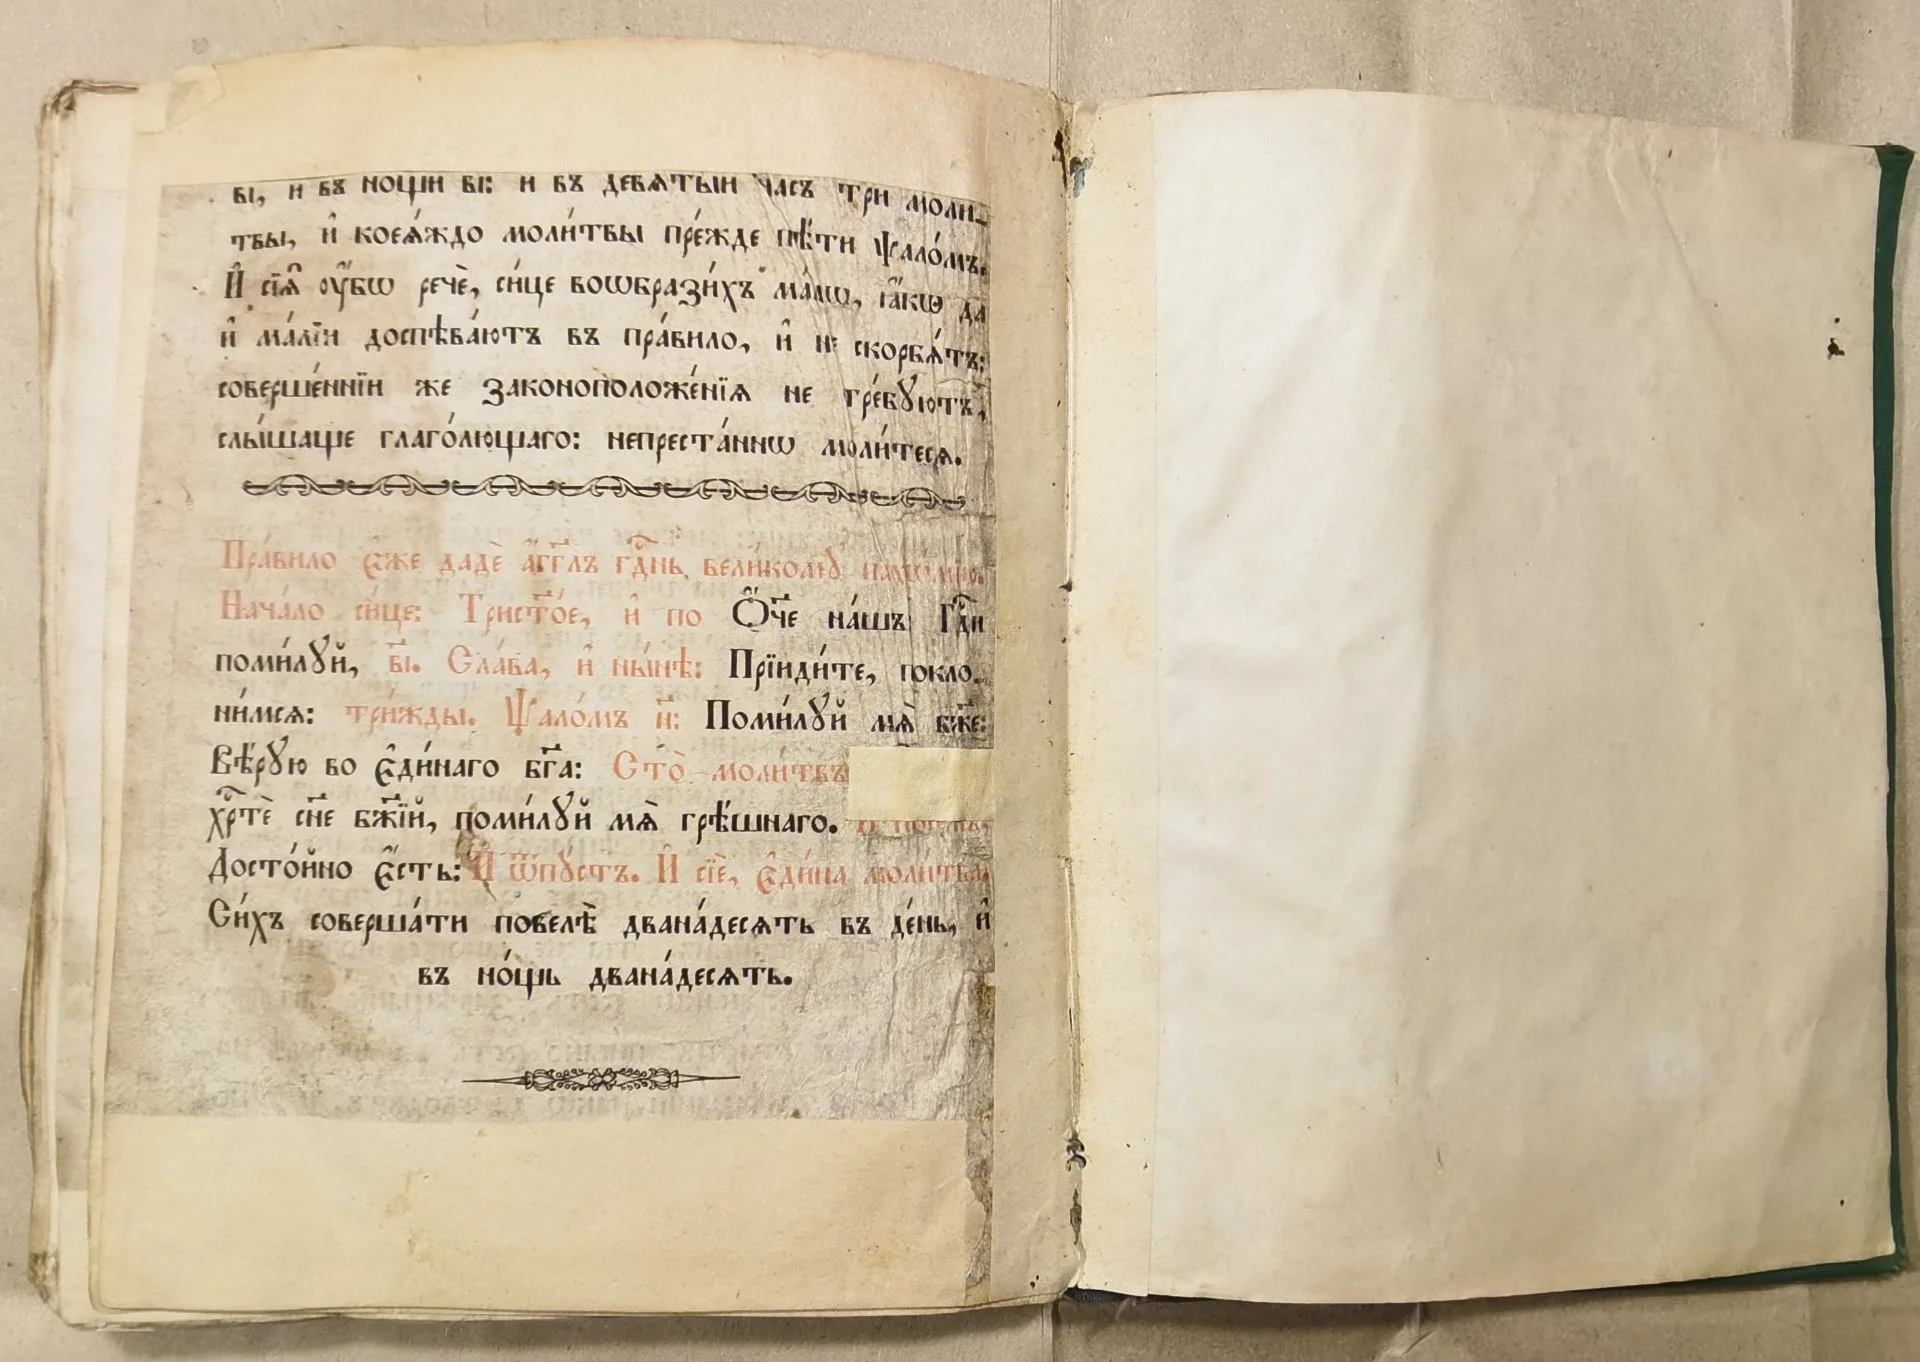 ві, и въ нощи ві: и въ девѧтыи часъ три моли-
твы, и҆ коеѧ́ждо моли́твы пре́жде пѣ́ти ѱало́мъ.
И҆ сїѧ̑ ᲂу҆́бѡ речѐ, си́це воѡбрази́хъ ма́лѡ, ꙗ҆́кѡ да
и҆ ма́лїи доспѣва́ютъ въ пра́вило, и҆ не скорбѧ́тъ:
соверше́ннїи же законоположе́нїѧ не тре́бꙋютъ,
слы́шаще глаго́лющаго: непреста́ннѡ моли́тесѧ.
Пра́вило є҆́же дадѐ а҆́гг҃лъ гдⷭ҇нь вели́комꙋ пахѡ́мїю.
Нача́ло си́це: Трист҃о́е, и҆ по Ѻ҆́ч҃е на́шъ Гдⷭ҇и
поми́лꙋй, в҃і. Сла́ва, и҆ ны́нѣ: Прїиди́те, покло-
ни́мсѧ: три́жды. Ѱало́мъ н҃: Поми́лꙋй мѧ̀ бж҃е:
Вѣ́рꙋю во є҆ди́наго бг҃а: Сто̀ моли́твъ
хрⷭ҇тѐ сн҃е бж҃їй, поми́лꙋй мѧ̀ грѣ́шнаго.
Досто́йно є҆́сть: И҆ ѿпꙋ́стъ. И҆ сїѐ, є҆ди́на моли́тва.
Си́хъ соверша́ти повелѣ̀ двана́десѧть въ де́нь, и҆
въ но́щь двана́десѧть.